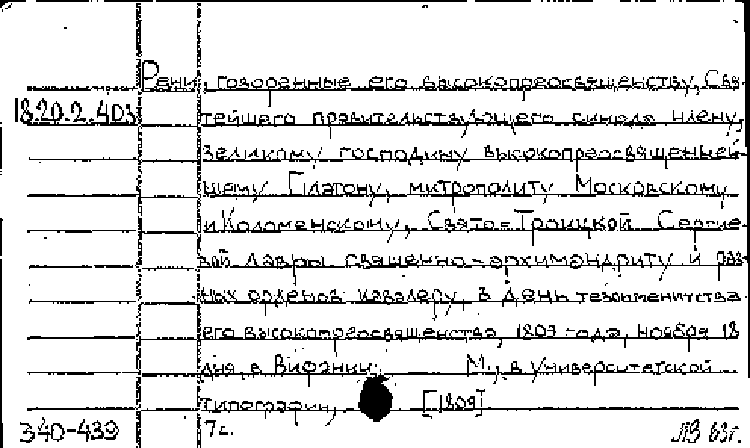 Речи, говоренные его высокопреосвященству, Свя-
18.20.2.403 тейшего правительствующего синода члену,
великому господину высокопреосвященней-
шему Платону, митрополиту Московскому
и Коломенскому, Свято-Троицкой Сергие-
вой Лавры священно-архимандриту и раз-
ных орденов кавалеру, в день тезоименитства
его высокопреосвященства, 1809 года, ноября 18
дня, в Вифании. М., в Университетской
типографии, [1809]
340-439 7с. ЛВ 63г.